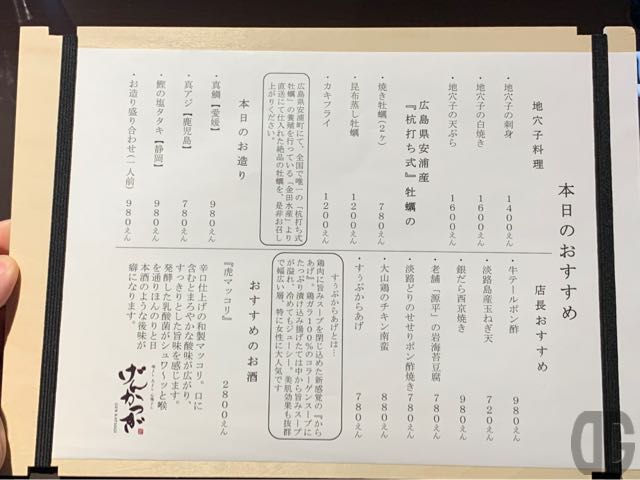 本日のおすすめ
地穴子料理
・地穴子の刺身 1400えん
・地穴子の白焼き 1600えん
・地穴子の天ぷら 1600えん
広島県安浦産
『杭打ち式』牡蠣の
・焼き牡蠣(2ヶ) 780えん
・昆布蒸し牡蠣 1200えん
・カキフライ 1200えん
広島県安浦町にて、全国で唯一の「杭打ち式
牡蠣」の養殖を行っている『金田水産』より
直送にて仕入れた絶品の牡蠣を、是非お召し
上がりください。
本日のお造り
・真鯛【愛媛】 980えん
・真アジ【鹿児島】 780えん
・鰹の塩タタキ【静岡】 980えん
・お造り盛り合わせ(一人前) 980えん
店長おすすめ
・牛テールポン酢 980えん
・淡路島産玉ねぎ天 720えん
・銀だら西京焼き 980えん
・老舗『源平』の岩海苔豆腐 780えん
・淡路どりのせせりポン酢焼き 780えん
・大山鶏のチキン南蛮 880えん
・すうぷからあげ 780えん
すぅぷからあげとは…
鶏肉に旨みスープを閉じ込めた新感覚の『から
あげ』。鶏ガラ100%のコラーゲンスープに
たっぷり漬け込み揚げたては中から旨みスープ
が溢れ、冷めてもジューシー。美肌効果も抜群
で幅広い層、特に女性に大人気です
おすすめのお酒
『虎マッコリ』 2800えん
辛口仕上げの和製マッコリ。口に
含むとまろやかな酸味が広がり、
すっきりとした旨味を感じます。
発酵した乳酸菌がシュワ〜ッと喉
を通りほんのりと日
本酒のような後味が
癖になります。
げんかつぎ
DG